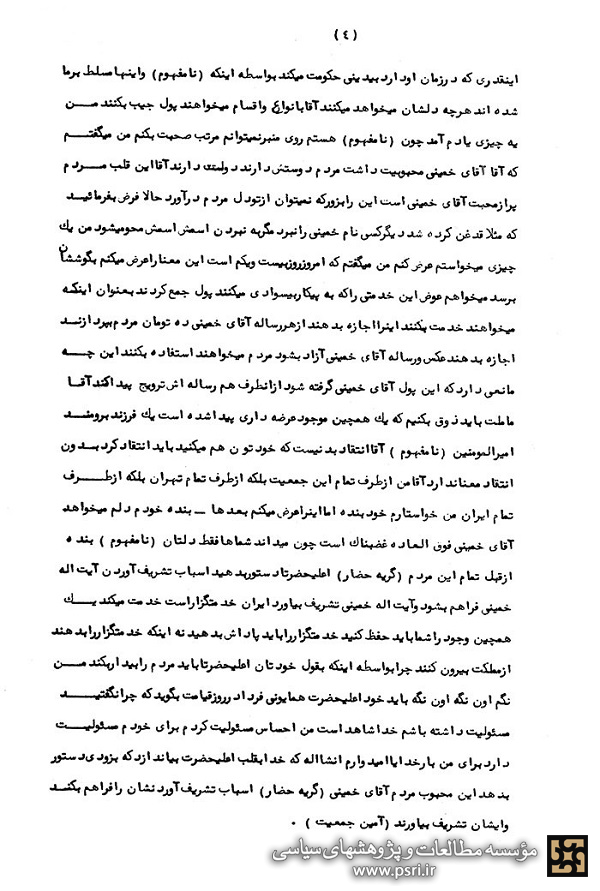 (٤)
اینقدری که درزمان او دارد بیدینی حکومت میکند بواسطه اینکه (نامفهوم) واینها مسلط برما
شده اند هرچه دلشان میخواهد میکنند آقا بانواع واقسام میخواهند پول جیب بکنند مــن
یه چیزی یادم آمد چون (نامفهوم) هستم روی منبر نمیتوانم مرتب صحبت بکنم من میگفتــم
که آقا آقای خمینی محبوبیت داشت مردم دوستش دارند ولمتی دارند آقا این قلب مــردم
پرازمحبت آقای خمینی است این رابزورکه نمیتوان ازتودل مردم درآورد حالا فرض بفرمائیــد
که مثلا قدغن کرده شد دیگرکسی نام خمینی رانبرد مگربه نبردن اسمش اسمش محومیشود من یك
چیزی میخواستم عرض کنم من میگفتم که امروز روزبیست ویکم است این معناراعرض میکنم بگوششان
برسد میخواهم عوض این خدمتی راکه به پیکاربیسوادی میکنند پول جمع کردند بعنوان اینکــه
میخواهند خدمت بکنند اینرا اجازه بدهند ازهررساله آقای خمینی ده تومان مردم بپردازنــد
اجازه بدهند عکس ورساله آقای خمینی آزاد بشود مردم میخواهند استفاده بکنند این چــه
مانعی دارد که این پول آقای خمینی گرفته شود ازآنطرف هم رساله اش ترویج پیدا کند آقــا
ماملت باید ذوق بکنیم که یك همچین موجود عرضه داری پیدا شده است یك فرزند برومنــد
امیرالمومنین (نامفهوم) آقا انتقاد بد نیست که خود تون هم میکنید باید انتقاد کرد بــدون
انتقاد معنا ندارد آقا من ازطرف تمام این جمعیت بلکه ازطرف تمام تهران بلکه ازطــرف
تمام ایران من خواستارم خود بنده اما اینراعرض میکنم بعدها ــ بنده خودم دلم میخواهد
آقای خمینی فوق العاده غضبناك است چون میداند شماها فقط دلتان (نامفهوم) بنده
ازقبل تمام این مردم (گریه حضار) اعلیحضرتا دستوربدهید اسباب تشریف آوردن آیت اله
خمینی فراهم بشود وآیت اله خمینی تشریف بیاورد ایران خدمتگزاراست خدمت میکند یــك
همچین وجود راشما باید حفظ کنید خدمتگزاررا باید پاداش بدهید نه اینکه خدمتگزاررا بدهند
ازمملکت بیرون کنند چرا بواسطه اینکه بقول خودتان اعلیحضرتا باید مردم رابیدارکنند مــن
نگم اون نگه اون نگه باید خود اعلیحضرت همایونی فردا درروزقیامت بگوید که چرا نگفتیــد
مسئولیت داشته باشم خدا شاهد است من احساس مسئولیت کردم برای خودم مسئولیــت
دارد برای من بارخدایا امیدوارم انشااله که خدا بقلب اعلیحضرت بیاندازد که بزودی دستور
بدهد این محبوب مردم آقای خمینی (گریه حضار) اسباب تشریف آوردنشان رافراهم بکنــد
وایشان تشریف بیاورند (آمین جمعیت) .
مؤسسه مطالعات و پژوهشهای سیاسی
www.psri.ir